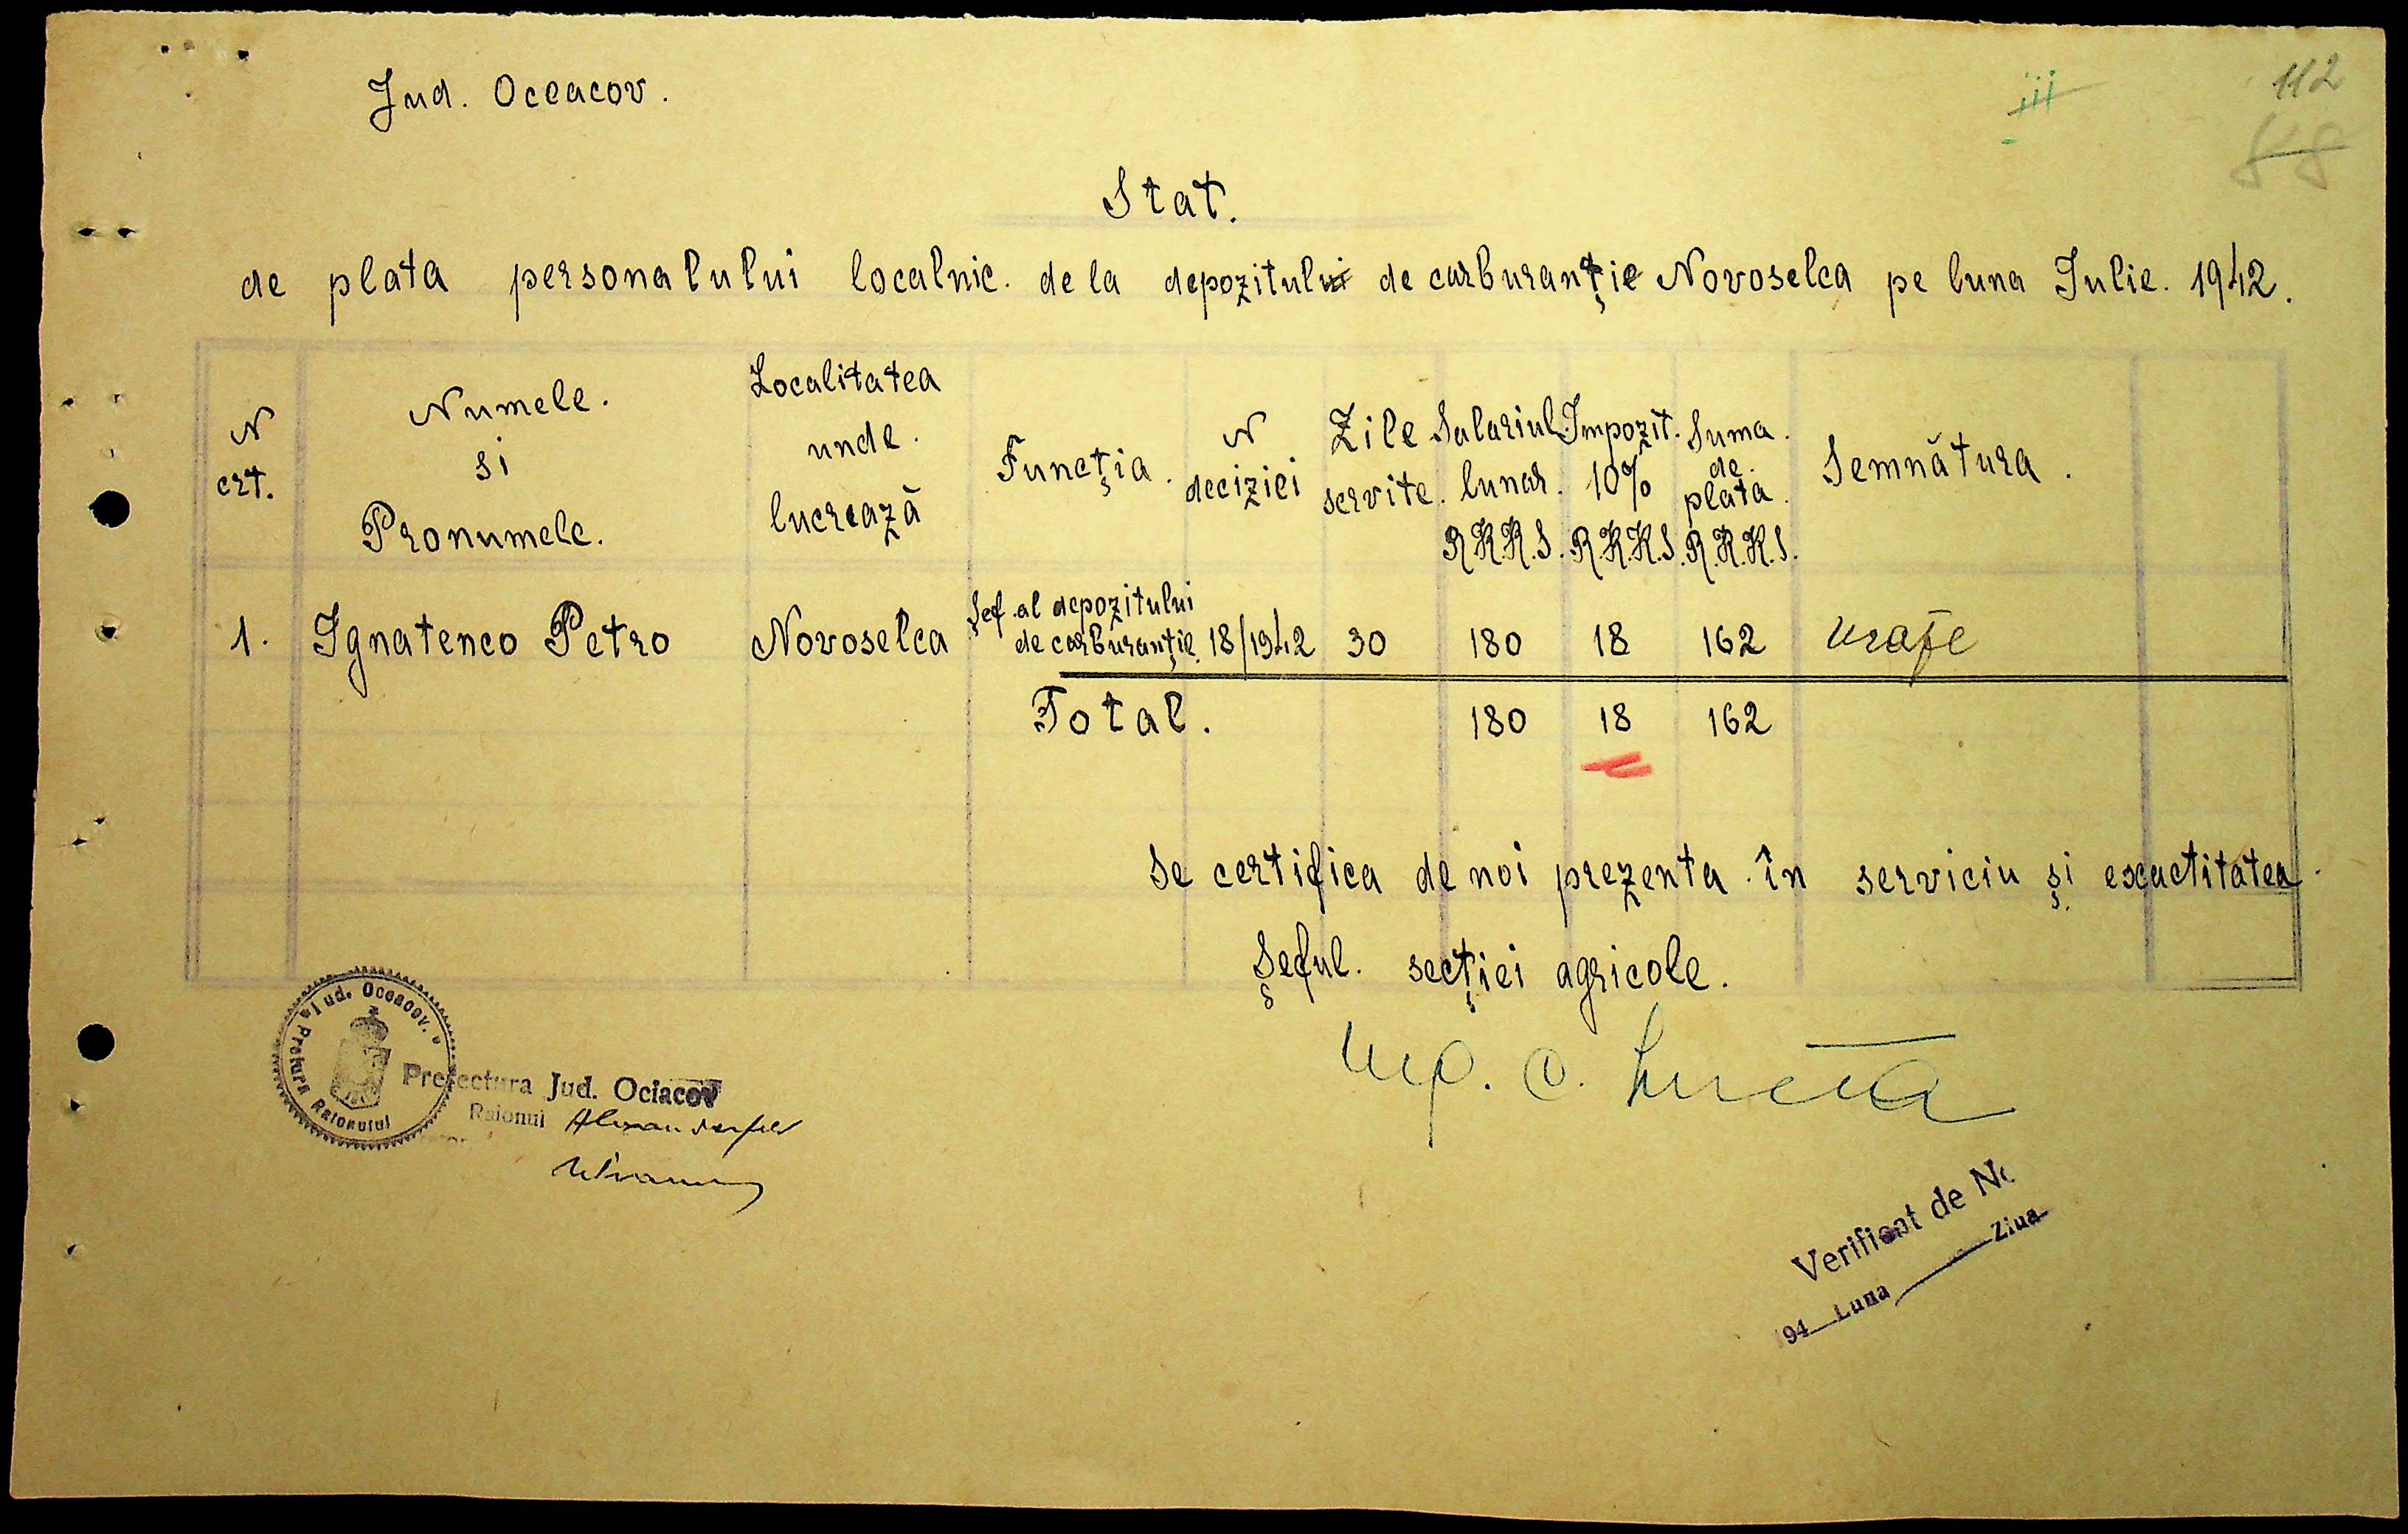 112
Jud. Oceacov.
Stat.
de plata personalului localnic. de la depozitului de carburanție Novoselca pe luna Iulie. 1942.
N crt.
Numele. si Pronumele.
Localitatea unde. lucrează
Funcția.
N deciziei
Zile servite.
Salariul lunar. R.K.K.S.
Impozit. 10% R.K.K.S.
Suma. de. plata. R.K.K.S.
Semnătura.
1. Ignatenco Petro Novoselca Șef al depozitului de carburanție. 18/1942 30 180 18 162
Total. 180 18 162
Se certifica de noi prezenta în serviciu și escactitatea.
Șeful. secției agricole.
Pretura Raionului Jud. Oceacov.
Prefectura Jud. Ociacov
Raionul
Verificat de No
194 Luna Ziua